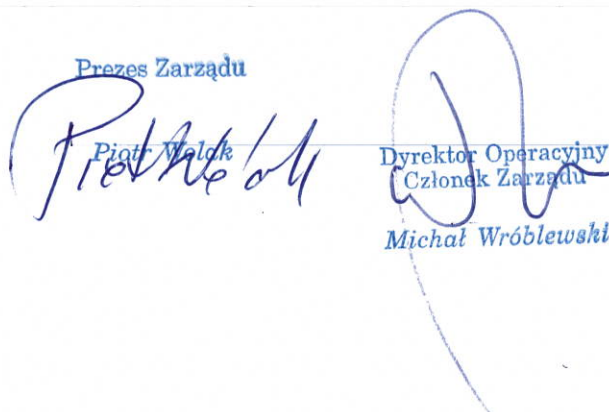 Prezes Zarządu
Piotr Wolak
Dyrektor Operacyjny
Członek Zarządu
Michał Wróblewski